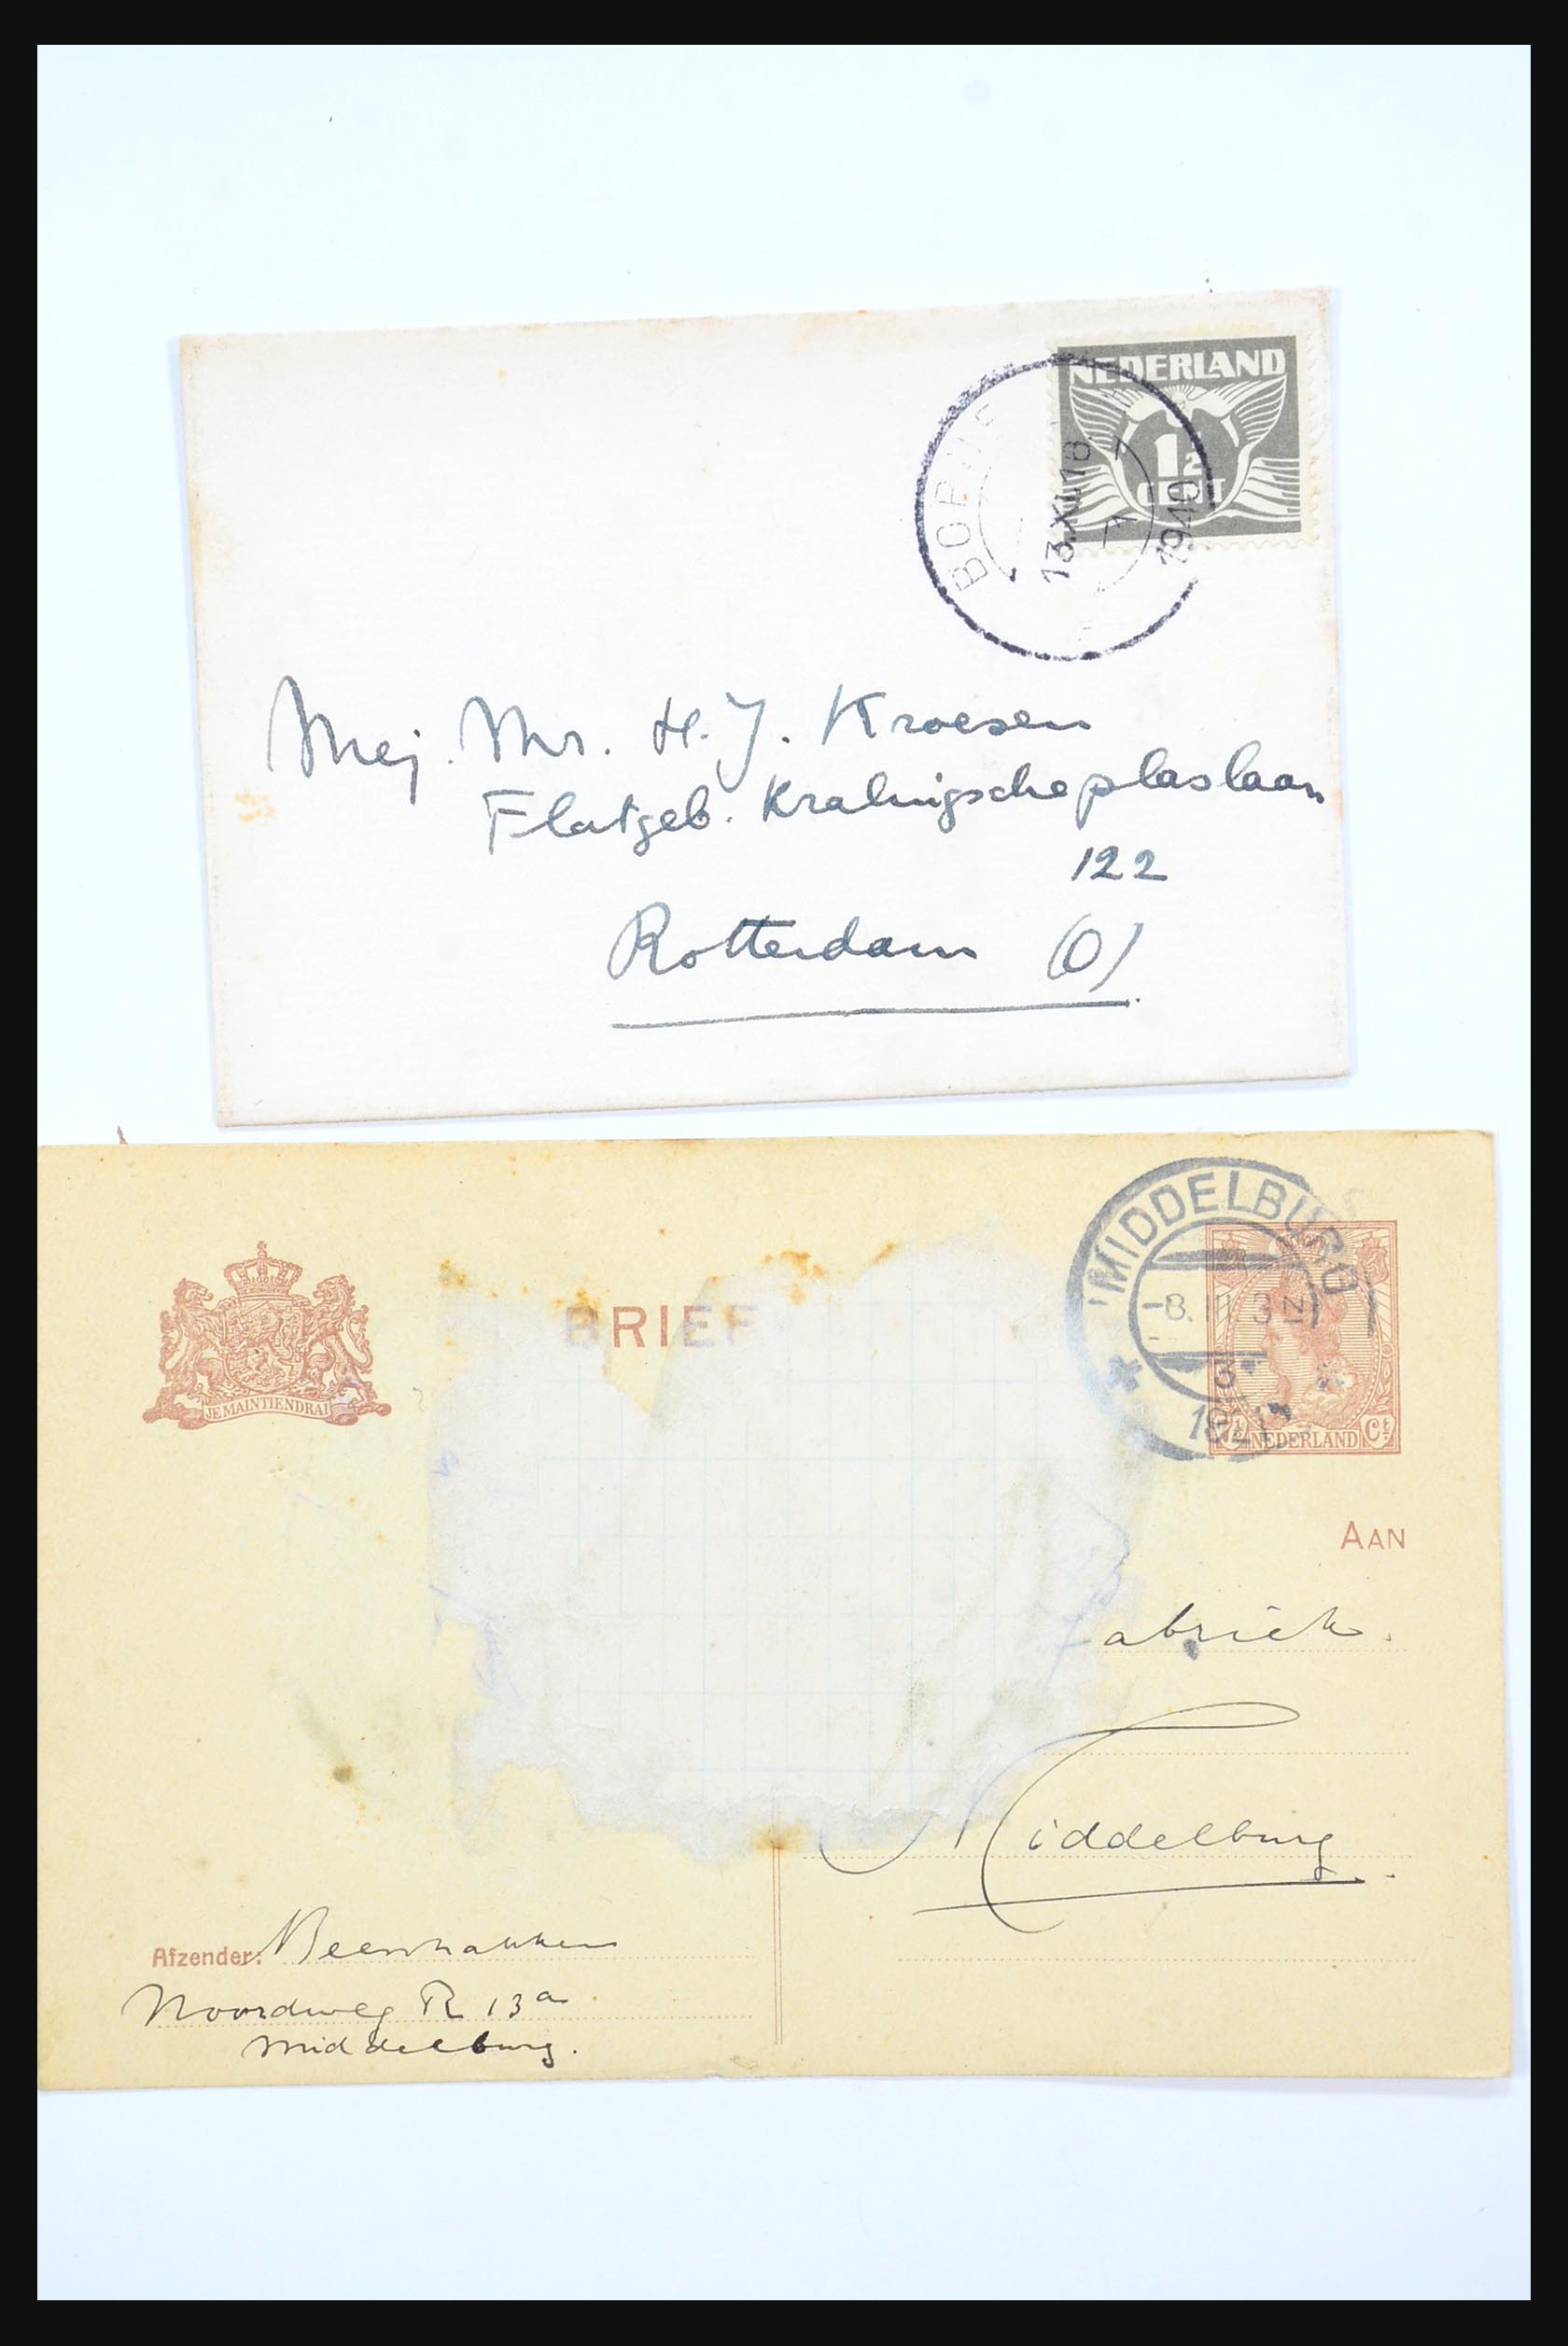 NEDERLAND
1½
CENT
13.XII.18
1940
Mej. Mr. H. J. Kroesen
Flatgeb. Kralingscheplaslaan
122
Rotterdam (O)
MIDDELBURG
BRIEF
JE MAINTIENDRAI
NEDERLAND Ct
AAN
abriek.
Middelburg.
Afzender: Beenhakker
Noordweg R 13a
Middelburg.